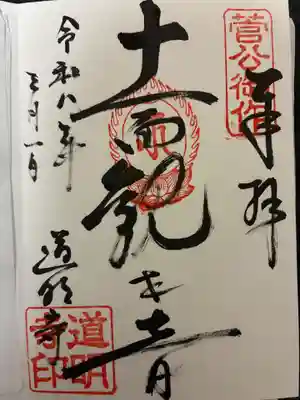 菅公御作
奉拝
十一面観世音
道明寺
道明寺印
令和八年
三月一日